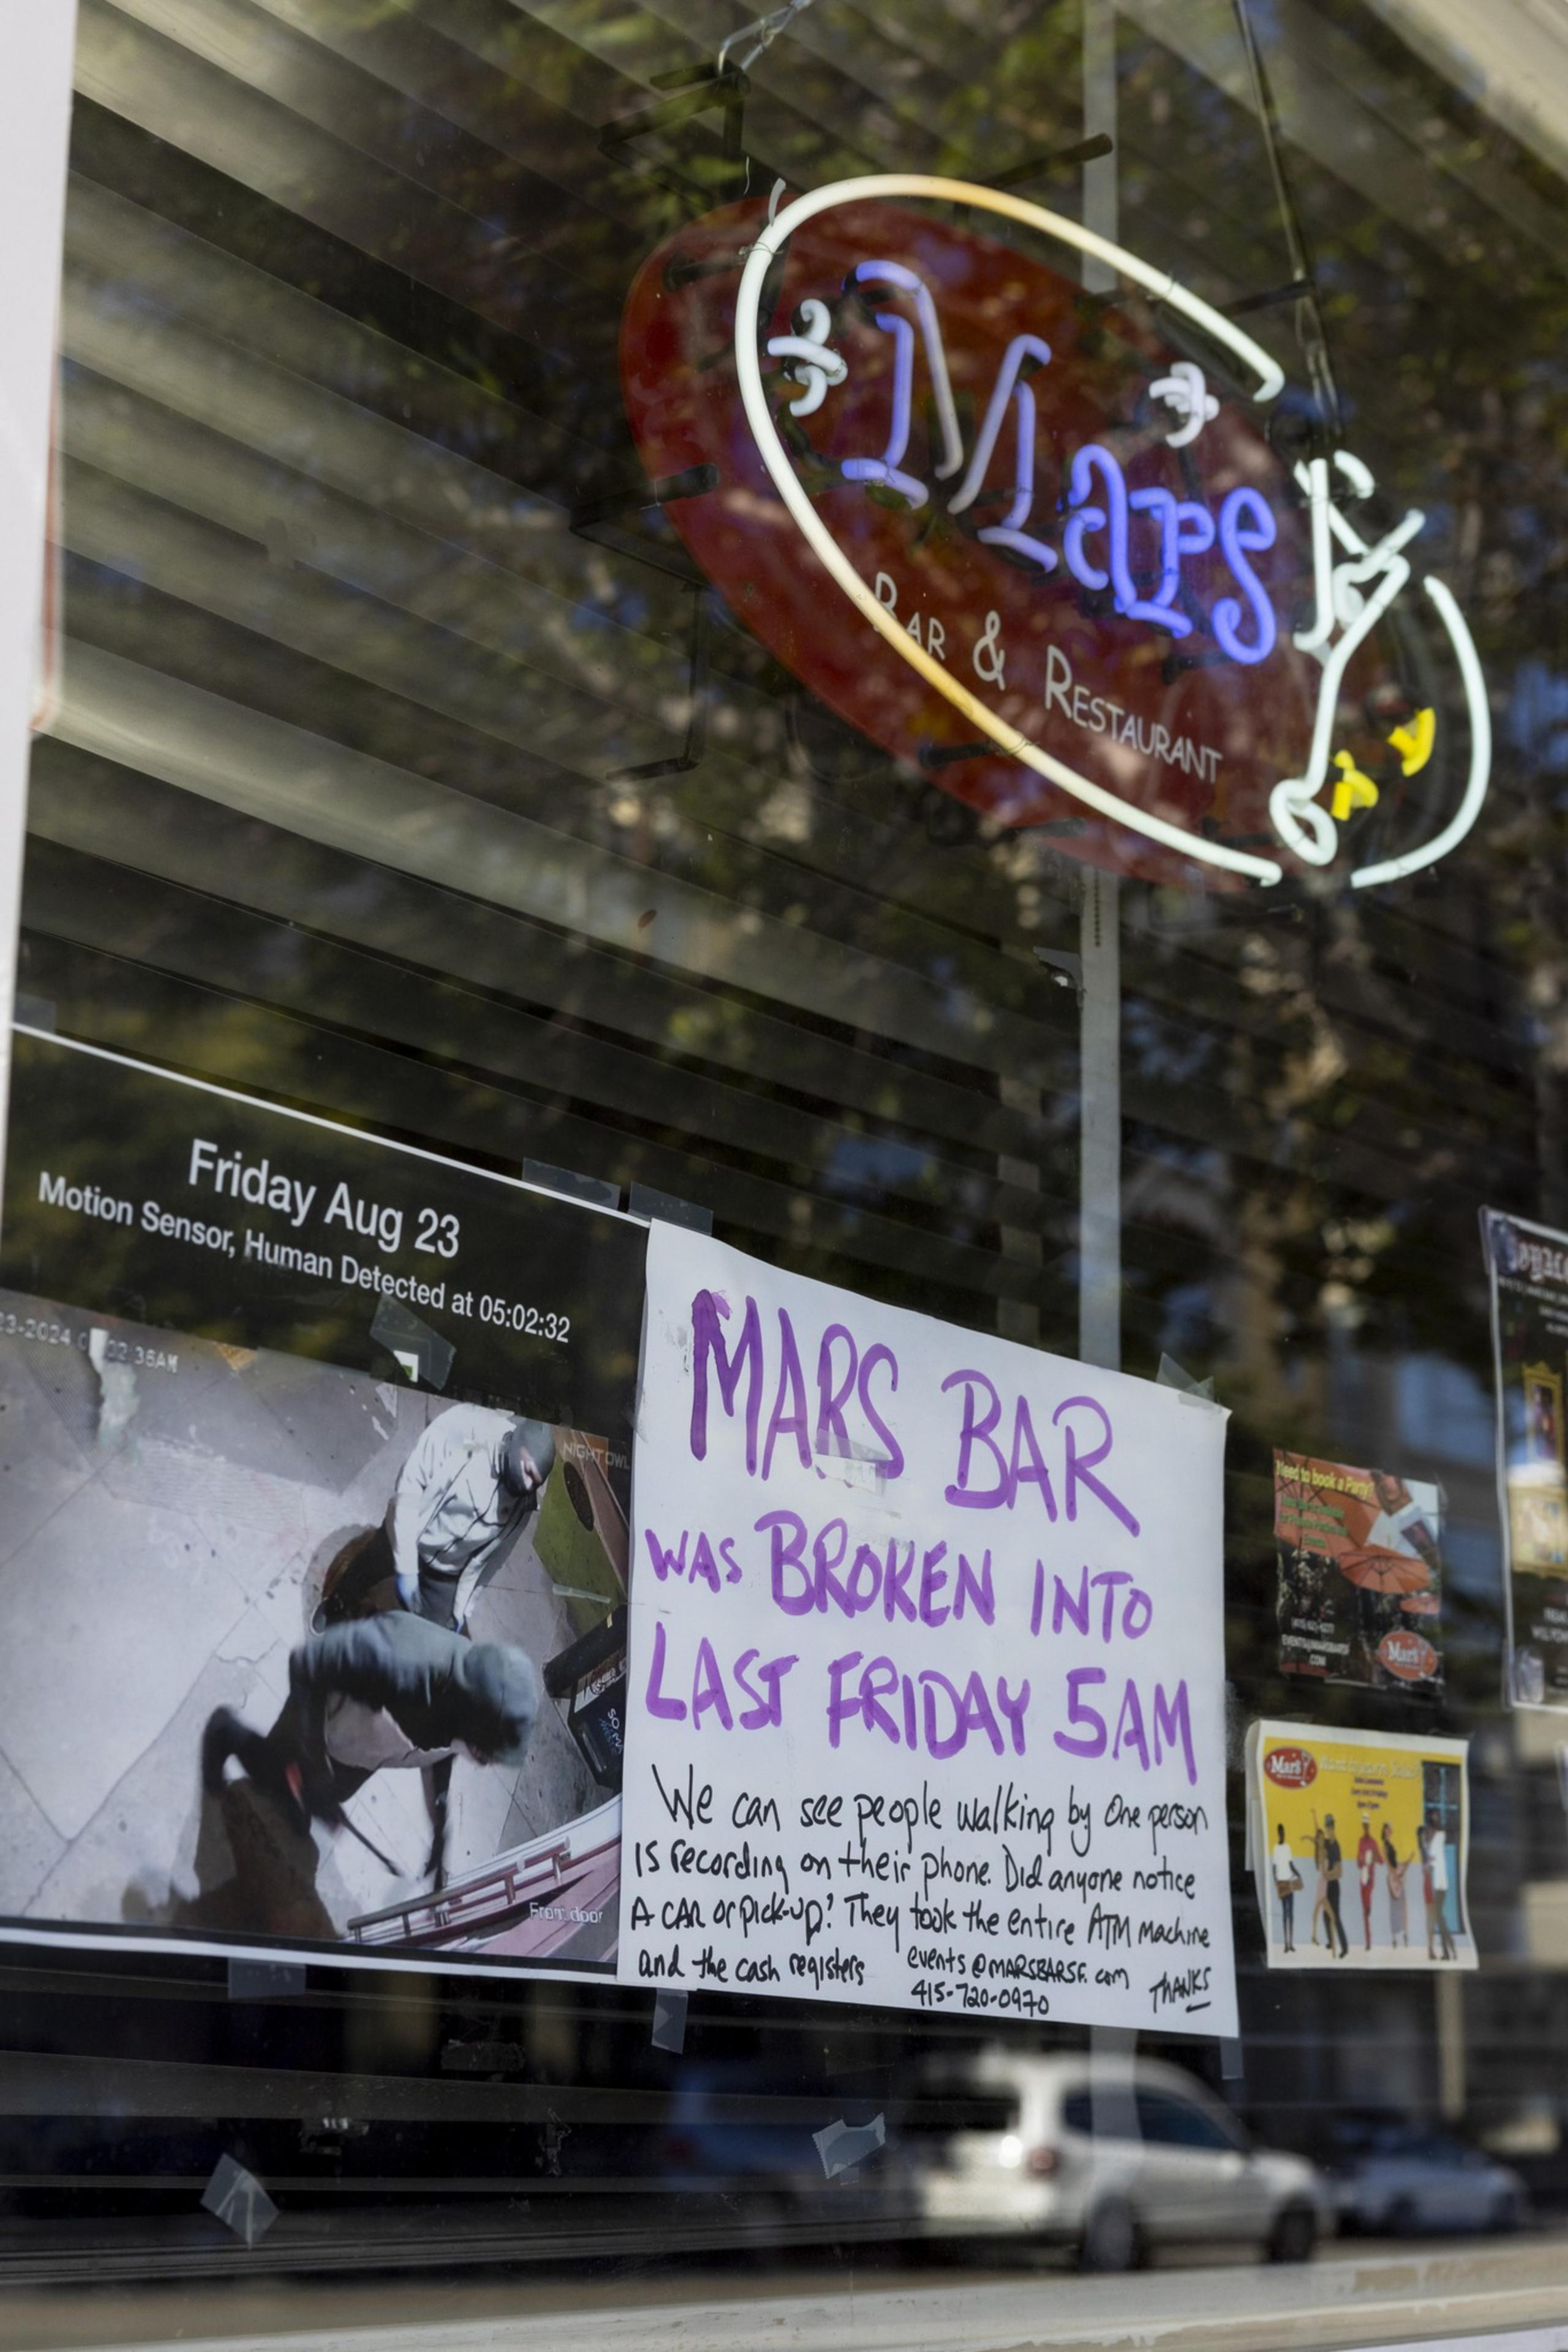 Mars
BAR & RESTAURANT
Friday Aug 23
Motion Sensor, Human Detected at 05:02:32
NIGHT OWL
Front door
MARS BAR
WAS BROKEN INTO
LAST FRIDAY 5AM
We can see people walking by One person
is recording on their phone. Did anyone notice
A CAR or pick-up? They took the entire ATM machine
and the cash registers
events@MARSBARSF.com
415-720-0970
THANKS
Need to book a Party?
Mars
Mars